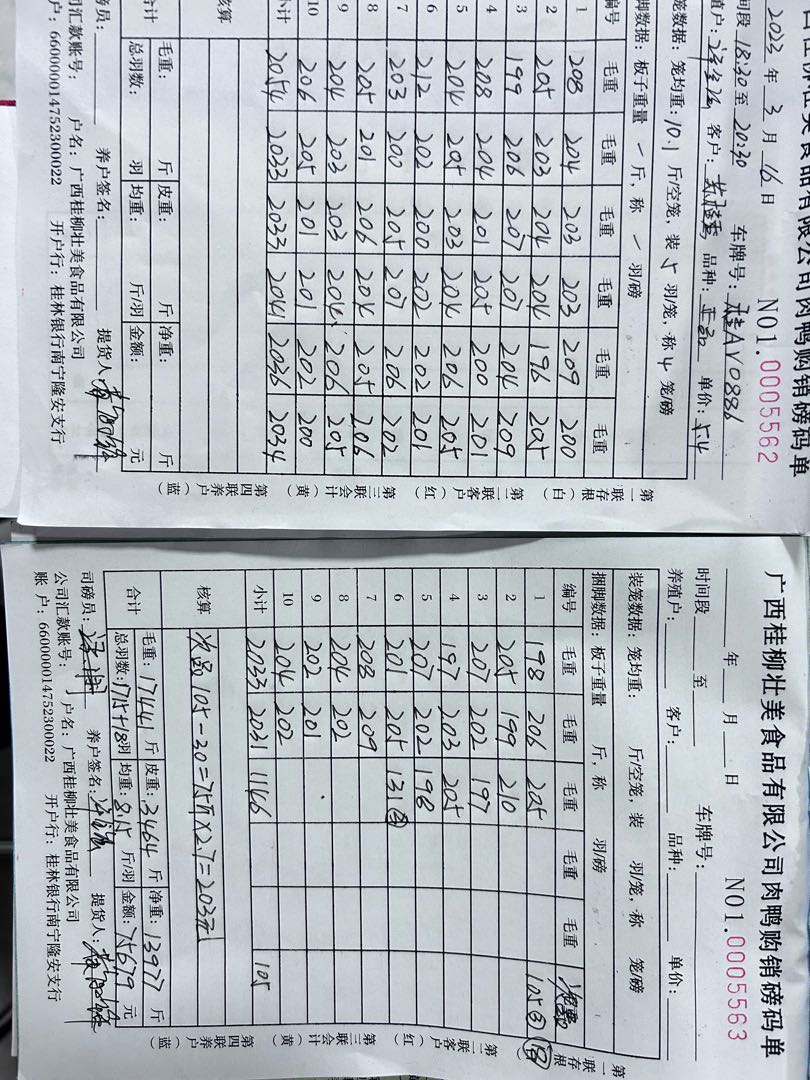 广西桂柳壮美食品有限公司肉鸭购销磅码单
NO1.0005562
2023年3月16日 车牌号:桂AV0886
时间段18:30至20:30
养殖户: 客户: 品种:正品 单价:5.4
装笼数据:笼均重:10.1斤/空笼,装5羽/笼,称4笼/磅
捆脚数据:板子重量 斤,称 羽/磅
编号 毛重 毛重 毛重 毛重 毛重 毛重
1 208 204 203 203 209 200
2 205 203 204 204 196 205
3 199 206 207 207 204 209
4 208 204 201 205 200 201
5 204 205 203 204 206 205
6 212 202 200 202 202 201
7 203 200 205 207 206 202
8 205 201 206 204 205 206
9 204 203 203 204 206 205
10 206 205 201 201 202 200
小计 2054 2033 2033 2041 2036 2034
核算
合计 毛重: 斤 皮重: 斤 净重: 斤
总羽数: 羽 均重: 斤/羽 金额: 元
司磅员: 养户签名: 提货人:
公司汇款账号: 户名:广西桂柳壮美食品有限公司
账户:660000014752300022 开户行:桂林银行南宁隆安支行
第一联存根(白) 第二联客户(红) 第三联会计(黄) 第四联养户(蓝)
广西桂柳壮美食品有限公司肉鸭购销磅码单
NO1.0005563
年 月 日 车牌号:
时间段 至
养殖户: 客户: 品种: 单价:
装笼数据:笼均重: 斤/空笼,装 羽/笼,称 笼/磅
捆脚数据:板子重量 斤,称 羽/磅
编号 毛重 毛重 毛重 毛重 毛重 次品
1 198 206 205 105③ ⑱
2 205 199 210
3 207 202 197
4 197 203 205
5 207 202 198
6 201 205 131③
7 208 209
8 204 202
9 202 201
10 204 202
小计 2033 2031 1146 105
核算 次品105-30=75斤×2.7=203元
合计 毛重:17441斤 皮重:3464斤 净重:13977斤
总羽数:1715+18羽 均重:8.15斤/羽 金额:75679元
司磅员: 养户签名: 提货人:
公司汇款账号: 户名:广西桂柳壮美食品有限公司
账户:660000014752300022 开户行:桂林银行南宁隆安支行
第一联存根(白) 第二联客户(红) 第三联会计(黄) 第四联养户(蓝)